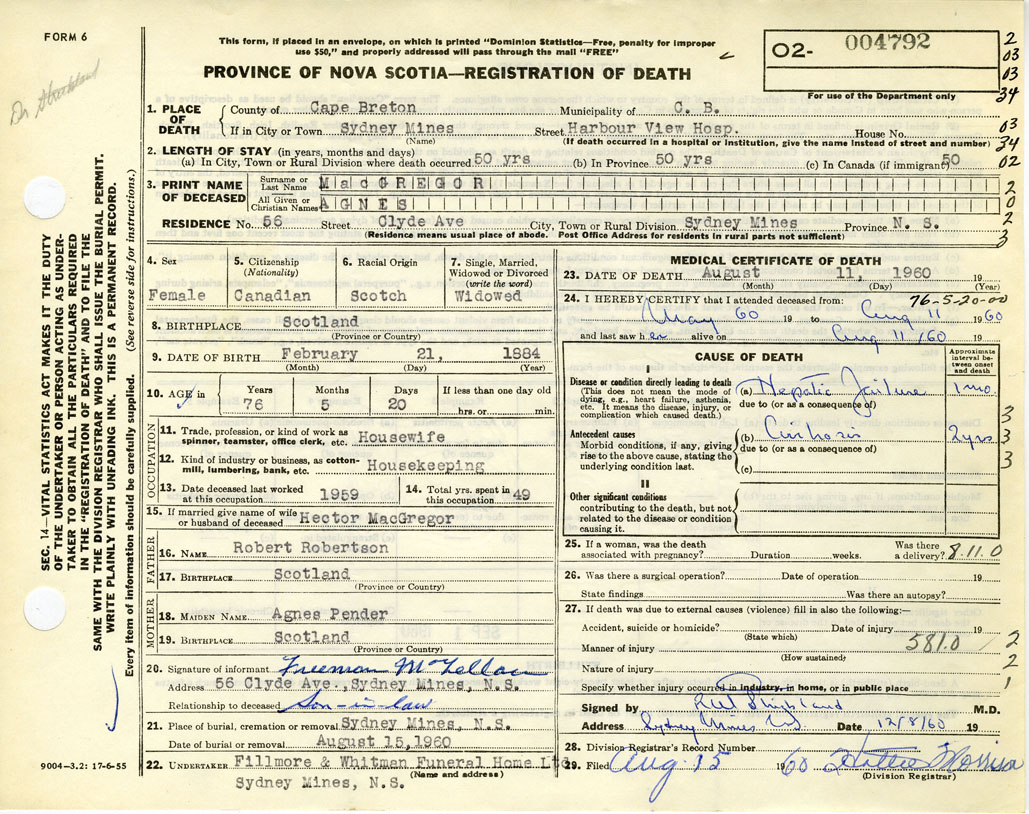 FORM 6
Dr Strickland
This form, if placed in an envelope, on which is printed "Dominion Statistics—Free, penalty for improper
use $50," and properly addressed will pass through the mail "FREE"
PROVINCE OF NOVA SCOTIA—REGISTRATION OF DEATH
O2- 004792
For use of the Department only
2
03
03
34
03
34
02
2
0
2
3
SEC. 14—VITAL STATISTICS ACT MAKES IT THE DUTY
OF THE UNDERTAKER OR PERSON ACTING AS UNDER-
TAKER TO OBTAIN ALL THE PARTICULARS REQUIRED
IN THE "REGISTRATION OF DEATH" AND TO FILE THE
SAME WITH THE DIVISION REGISTRAR WHO SHALL ISSUE THE BURIAL PERMIT.
WRITE PLAINLY WITH UNFADING INK. THIS IS A PERMANENT RECORD.
Every item of information should be carefully supplied. (See reverse side for instructions.)
1. PLACE OF DEATH
County of Cape Breton Municipality of C. B.
If in City or Town Sydney Mines Street Harbour View Hosp. House No.
(Name) (If death occurred in a hospital or institution, give the name instead of street and number)
2. LENGTH OF STAY (in years, months and days)
(a) In City, Town or Rural Division where death occurred 50 yrs (b) In Province 50 yrs (c) In Canada (if immigrant) 50
3. PRINT NAME OF DECEASED
Surname or Last Name MacGREGOR
All Given or Christian Names AGNES
RESIDENCE No. 56 Street Clyde Ave City, Town or Rural Division Sydney Mines Province N. S.
(Residence means usual place of abode. Post Office Address for residents in rural parts not sufficient)
4. Sex
Female
5. Citizenship
(Nationality)
Canadian
6. Racial Origin
Scotch
7. Single, Married,
Widowed or Divorced
(write the word)
Widowed
8. BIRTHPLACE Scotland
(Province or Country)
9. DATE OF BIRTH February 21, 1884
(Month) (Day) (Year)
10. AGE in Years Months Days If less than one day old
76 5 20 hrs. or min.
OCCUPATION
11. Trade, profession, or kind of work as
spinner, teamster, office clerk, etc. Housewife
12. Kind of industry or business, as cotton-
mill, lumbering, bank, etc. Housekeeping
13. Date deceased last worked
at this occupation 1959
14. Total yrs. spent in
this occupation 49
15. If married give name of wife
or husband of deceased Hector MacGregor
FATHER
16. NAME Robert Robertson
17. BIRTHPLACE Scotland
(Province or Country)
MOTHER
18. MAIDEN NAME Agnes Pender
19. BIRTHPLACE Scotland
(Province or Country)
20. Signature of informant Freeman McLellan
Address 56 Clyde Ave., Sydney Mines, N.S.
Relationship to deceased Son-in-law
21. Place of burial, cremation or removal Sydney Mines, N.S.
Date of burial or removal August 15,1960
22. UNDERTAKER Fillmore & Whitman Funeral Home Ltd
(Name and address)
Sydney Mines, N.S.
9004—3.2: 17-6-55
MEDICAL CERTIFICATE OF DEATH
23. DATE OF DEATH August 11, 1960 19
(Month) (Day) (Year)
76-5-20-00
24. I HEREBY CERTIFY that I attended deceased from:
May 60 19 to Aug 11 1960
and last saw her alive on Aug 11/60
CAUSE OF DEATH
Approximate interval between onset and death
I
Disease or condition directly leading to death
(This does not mean the mode of
dying, e.g., heart failure, asthenia,
etc. It means the disease, injury, or
complication which caused death.)
(a) Hepatic Failure 1 mo.
due to (or as a consequence of)
Antecedent causes
Morbid conditions, if any, giving
rise to the above cause, stating the
underlying condition last.
(b) Cirrhosis 2 yrs
due to (or as a consequence of)
(c)
3
3
3
II
Other significant conditions
contributing to the death, but not
related to the disease or condition
causing it.
25. If a woman, was the death
associated with pregnancy? Duration weeks. Was there
a delivery? 8.11.0
26. Was there a surgical operation? Date of operation 19
State findings Was there an autopsy?
27. If death was due to external causes (violence) fill in also the following:—
Accident, suicide or homicide? Date of injury 19
(State which)
Manner of injury 581.0
(How sustained)
Nature of injury
Specify whether injury occurred in industry, in home, or in public place
2
2
1
Signed by Strickland M.D.
Address Sydney Mines N.S. Date 12/8/60 19
28. Division Registrar's Record Number
29. Filed Aug. 15 1960 Hattie Morrison
(Division Registrar)